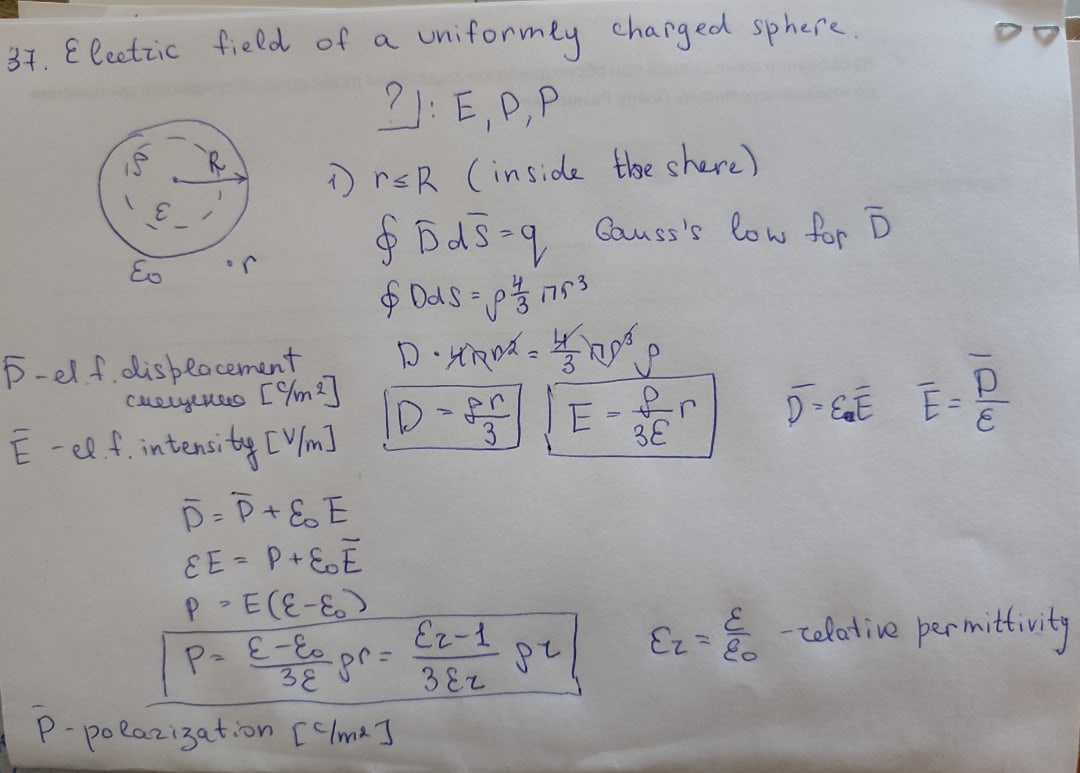 37. Electric field of a uniformly charged sphere.
?]: E, D, P
ρ R
ε
ε₀ ·r
1) r≤R (inside the shere)
∮ D̅ dS̅ = q Gauss's low for D̅
∮ DdS = ρ 4/3 πr³
D · 4πr² = 4/3 πr³ ρ
D = ρr/3 E = ρ/3ε r D̅ = εE̅ E̅ = D̅/ε
D̅ - el. f. displacement
смещение [C/m²]
E̅ - el. f. intensity [V/m]
D̅ = P̅ + ε₀ E
εE = P + ε₀E̅
P = E(ε-ε₀)
P = ε-ε₀/3ε ρr = εr-1/3εr ρr εr = ε/ε₀ - relative permittivity
P̅ - polarization [C/m²]